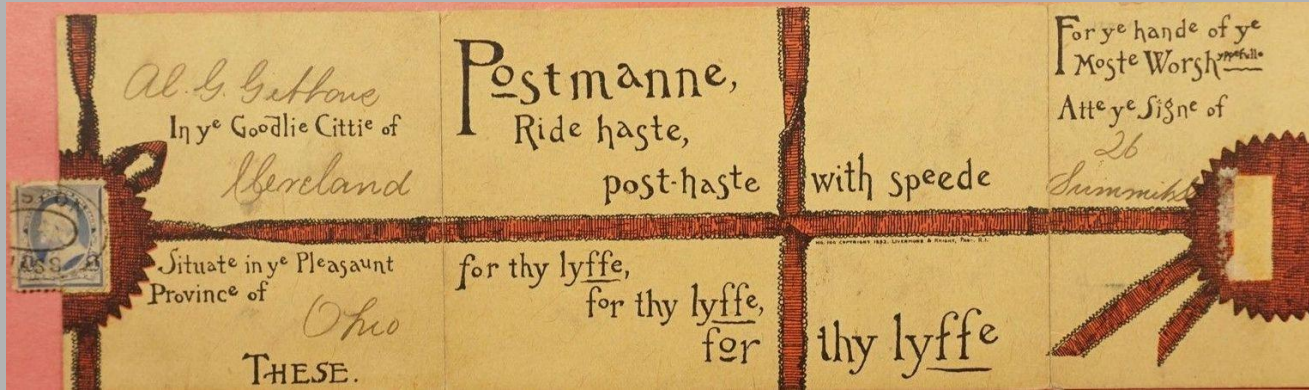 Al. G.
In ye Goodlie Cittie of
Cleveland
Situate in ye Pleasaunt
Province of
Ohio
THESE.
Postmanne,
Ride haste,
post-haste with speede
for thy lyffe,
for thy lyffe,
for thy lyffe
For ye hande of ye
Moste Worshyppefulle
Atte ye Signe of
26
Summit